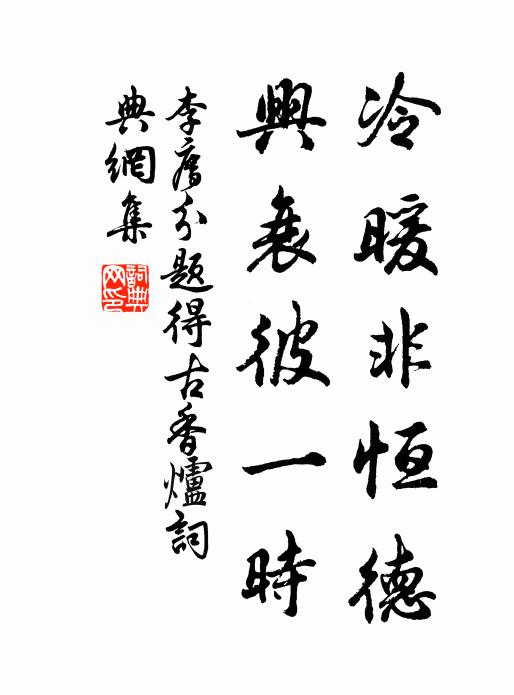 冷暖非恒德
興衰彼一時
李廌分題得古香爐詞
典網集
詞典網印